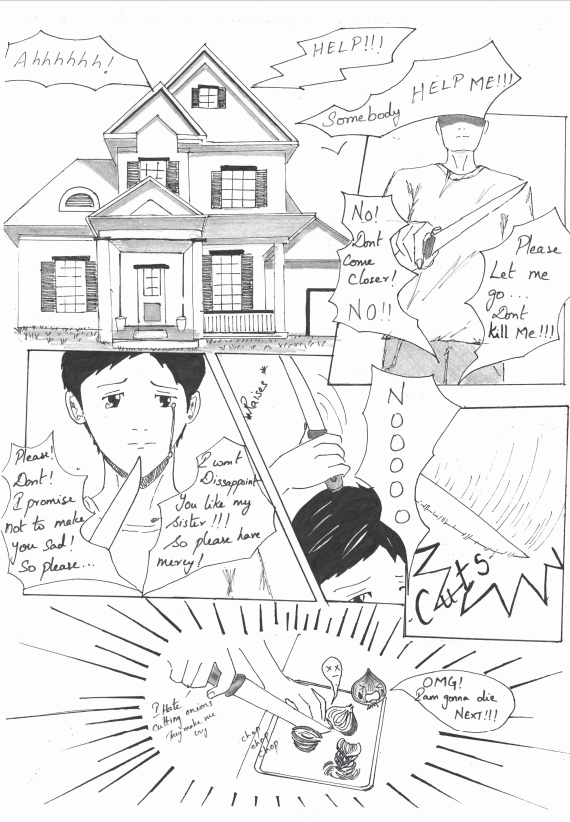 Ahhhhhh!
HELP!!!
Somebody HELP ME!!!
No!
Dont
Come
Closer!
NO!!
Please
Let me
go...
Dont
kill Me!!!
Please!
Dont!
I promise
not to make
you sad!
So please...
I wont
Dissappoint
You like my
sister!!!
So please have
mercy!
*Raises*
NOOOOOO
Cuts
I Hate
cutting onions
They make me
cry
chop
chop
chop
OMG!
I am gonna die
NEXT!!!